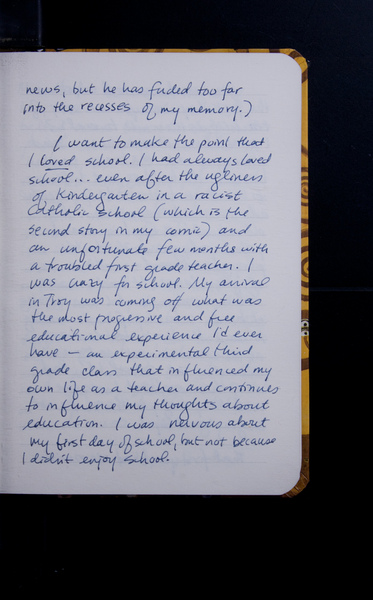 news, but he has faded too far
into the recesses of my memory.)
I want to make the point that
I loved school. I had always loved
school... even after the ugliness
of Kindergarten in a racist
Catholic school (which is the
second story in my comic) and
an unfortunate few months with
a troubled first grade teacher. I
was crazy for school. My arrival
in Troy was coming off what was
the most progressive and free
educational experience I'd ever
have — an experimental third
grade class that influenced my
own life as a teacher and continues
to influence my thoughts about
education. I was nervous about
my first day of school, but not because
I didn't enjoy school.